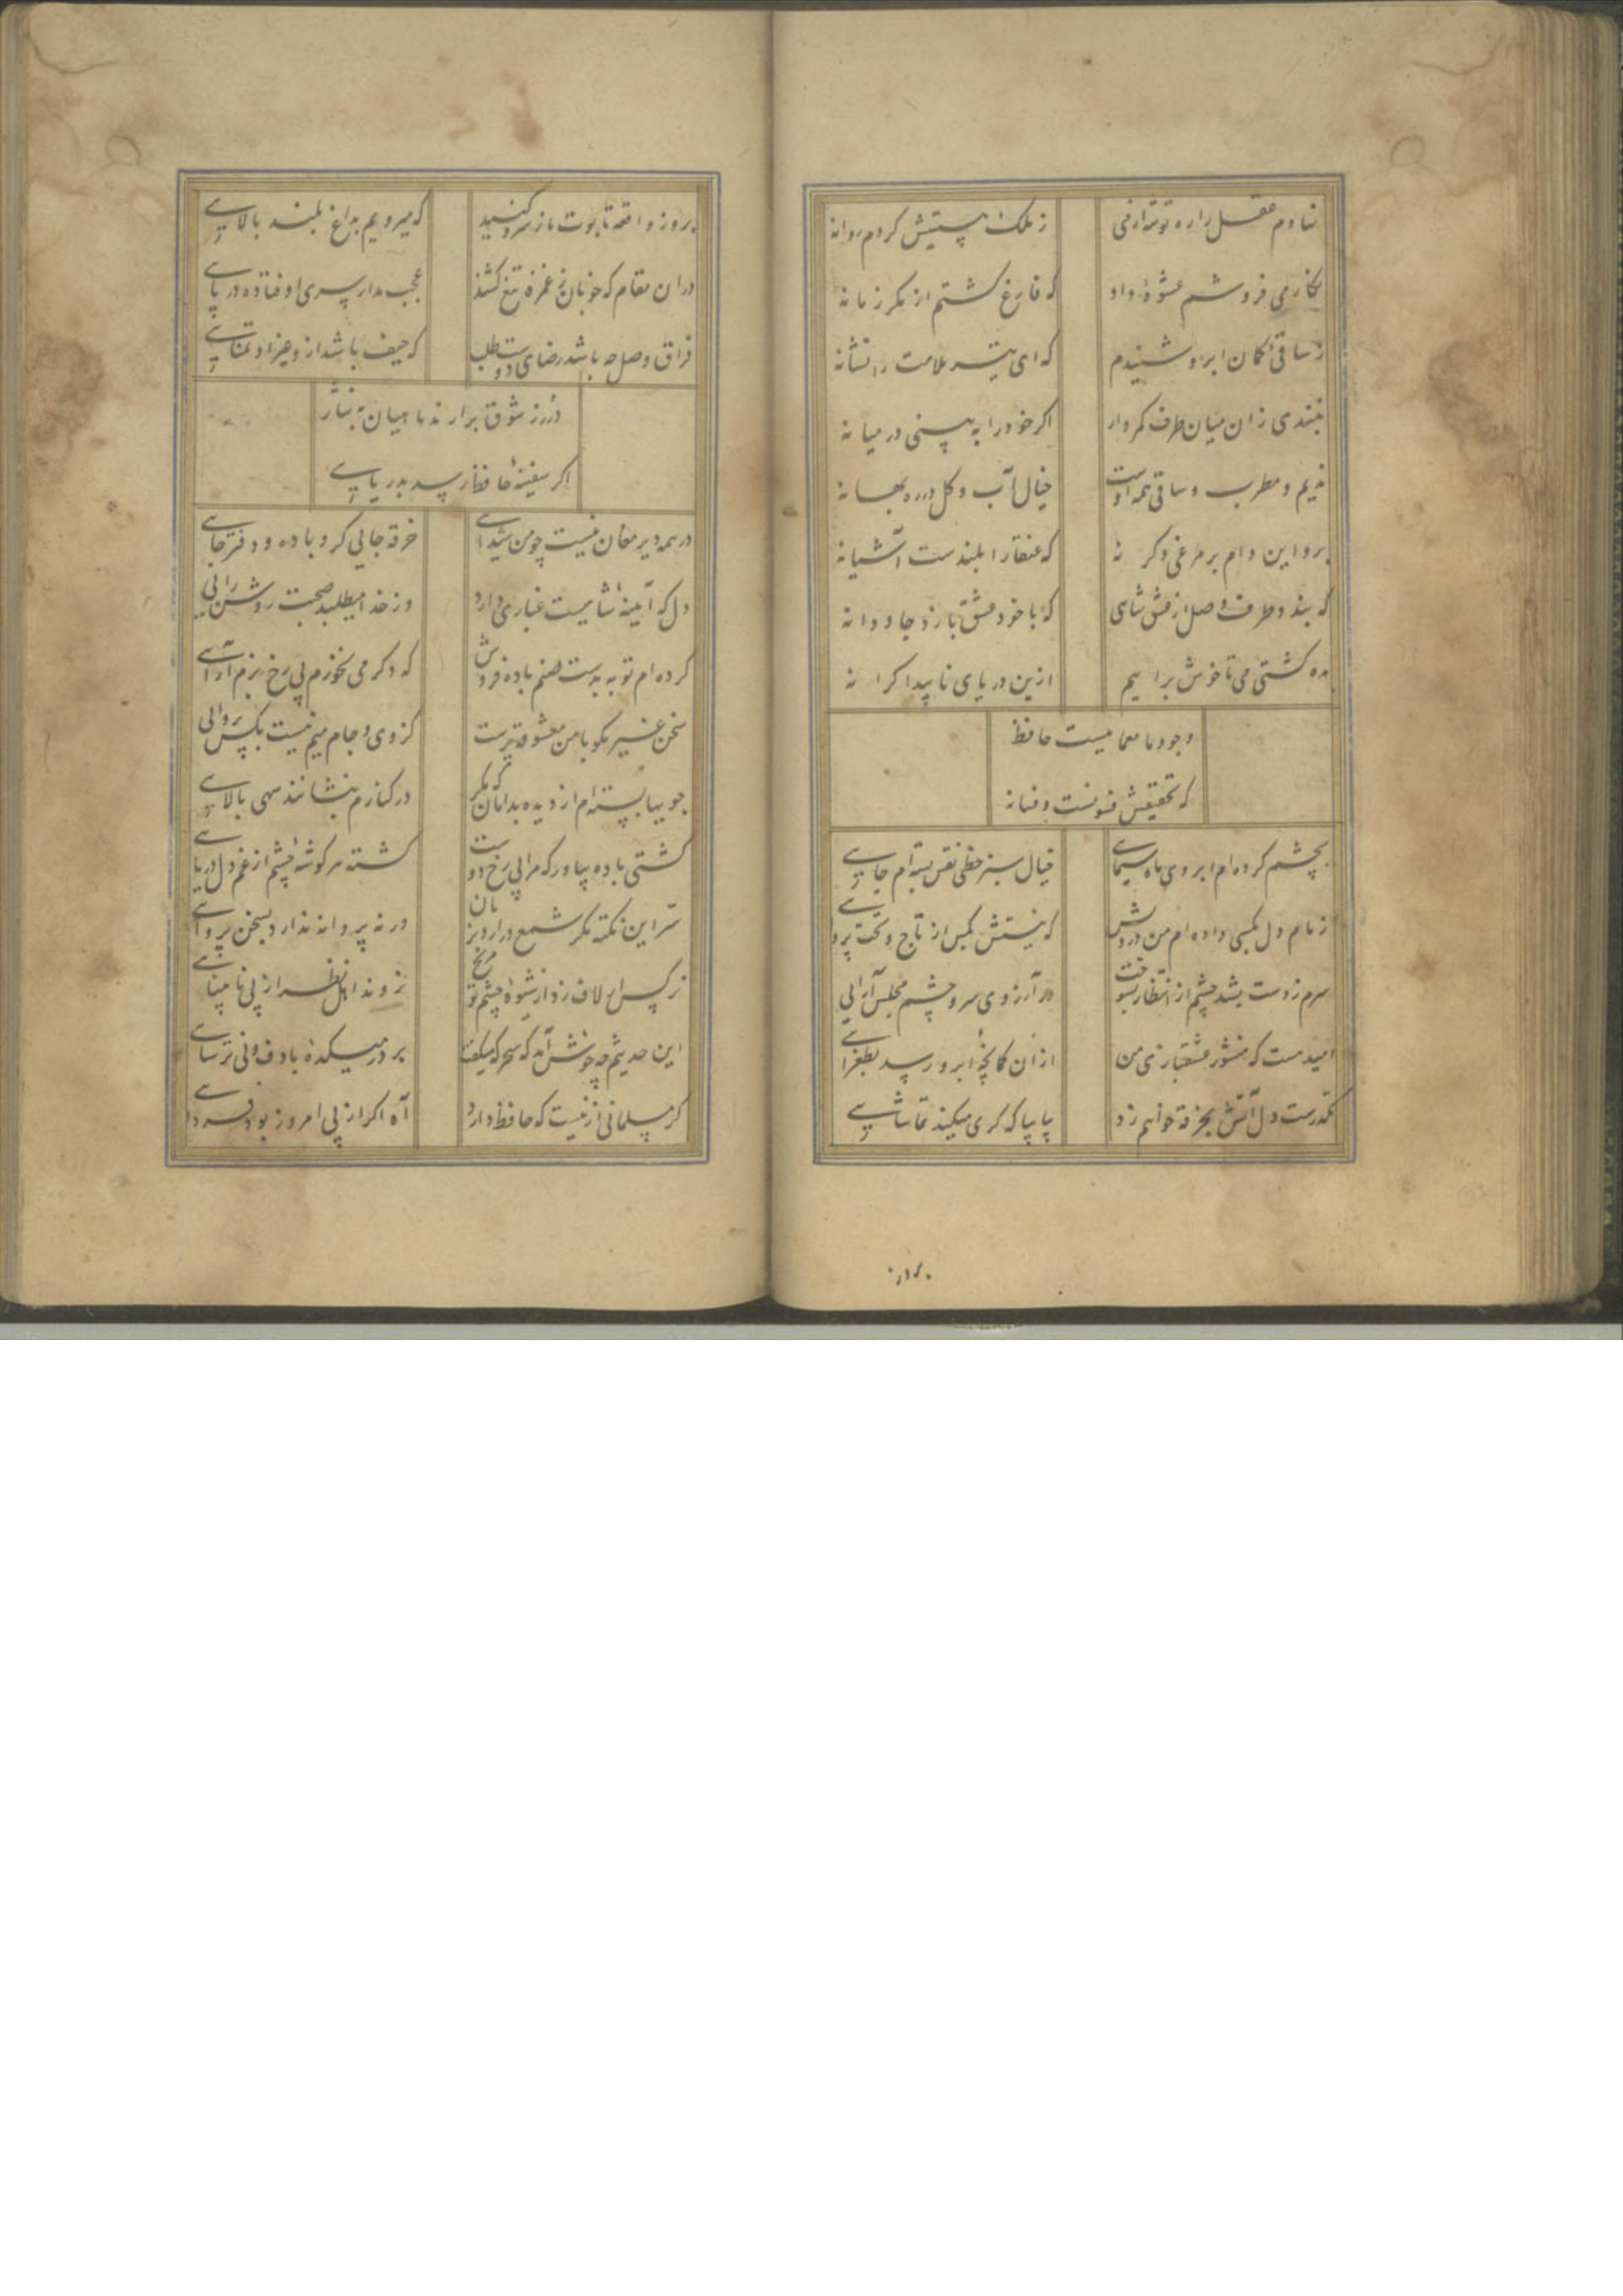 نهادم عقل را ره توشه از می ز ملک هستیش کردم روانه
نکار می فروشم عشوهٔ داد که فارغ کشتم از مکر زمانه
ز ساقی کمان ابرو شنیدم که ای تیر ملامت را نشانه
نبندی زان میان طرف کمروار اکر خود را به بینی در میانه
ندیم و مطرب و ساقی همه اوست خیال آب و کل در ره بهانه
برو این دام بر مرغی دکر نه که عنقا را بلندست آشیانه
که بندد طرف وصل از عشق شاهی که با خود عشق بازد جاودانه
بده کشتی می تا خوش برآییم ازین دریای ناپیدا کرانه
وجود ما معماییست حافظ
که تحقیقش فسونست و فسانه
بچشم کرده ام ابروی ماه سیمای خیال سبز خطی نقش بسته ام جایی
زمام دل بکسی داده ام من درویش که نیستش بکس از تاج و تخت پروای
سرم ز دست بشد چشم از انتظار بسوخت در آرزوی سر و چشم مجلس آرایی
امید هست که منشور عشقبازی من از آن کمانچهٔ ابرو رسد بطغرای
مکدرست دل آتش بخرقه خواهم زد بیا بیا که کرا میکند تماشایی
بروز
بروز واقعه تابوت ما ز سرو کنید که میرویم بداغ بلند بالایی
در ان مقام که خوبان ز غمزه تیغ کشند عجب مدار سری اوفتاده در پای
فراق و وصل چه باشد رضای دوست طلب که حیف باشد ازو غیر او تمنایی
درر ز شوق برارند ماهیان به نثار
اکر سفینهٔ حافظ رسد بدریایی
در همه دیر مغان نیست چو من شیدای خرقه جایی کرو باده و دفتر جای
دل که آیینهٔ شاهیست غباری دارد وز خدا میطلبد صحبت روشن رایی
کرده ام توبه بدست صنم باده فروش که دکر می نخورم بی رخ بزم آرای
سخن غیر مکو با من معشوقه پرست کز وی و جام میم نیست بکس پروایی
جویها بسته ام از دیده بدامان که مکر در کنارم بنشانند سهی بالایی
کشتی باده بیاور که مرا بی رخ دوست کشته هر کوشهٔ چشم از غم دل دریای
سر این نکته مکر شمع درارد بزبان ورنه پروانه ندارد بسخن پروای
نرکس ار لاف زد از شیوهٔ چشم تو مرنج نروند اهل نظر از پی نابینای
این حدیثم چه خوش آمد که سحرکه میکفت بر در میکدهٔ با دف و نی ترسای
کر مسلمانی ازینست که حافظ دارد آه اکر از پی امروز بود فردای